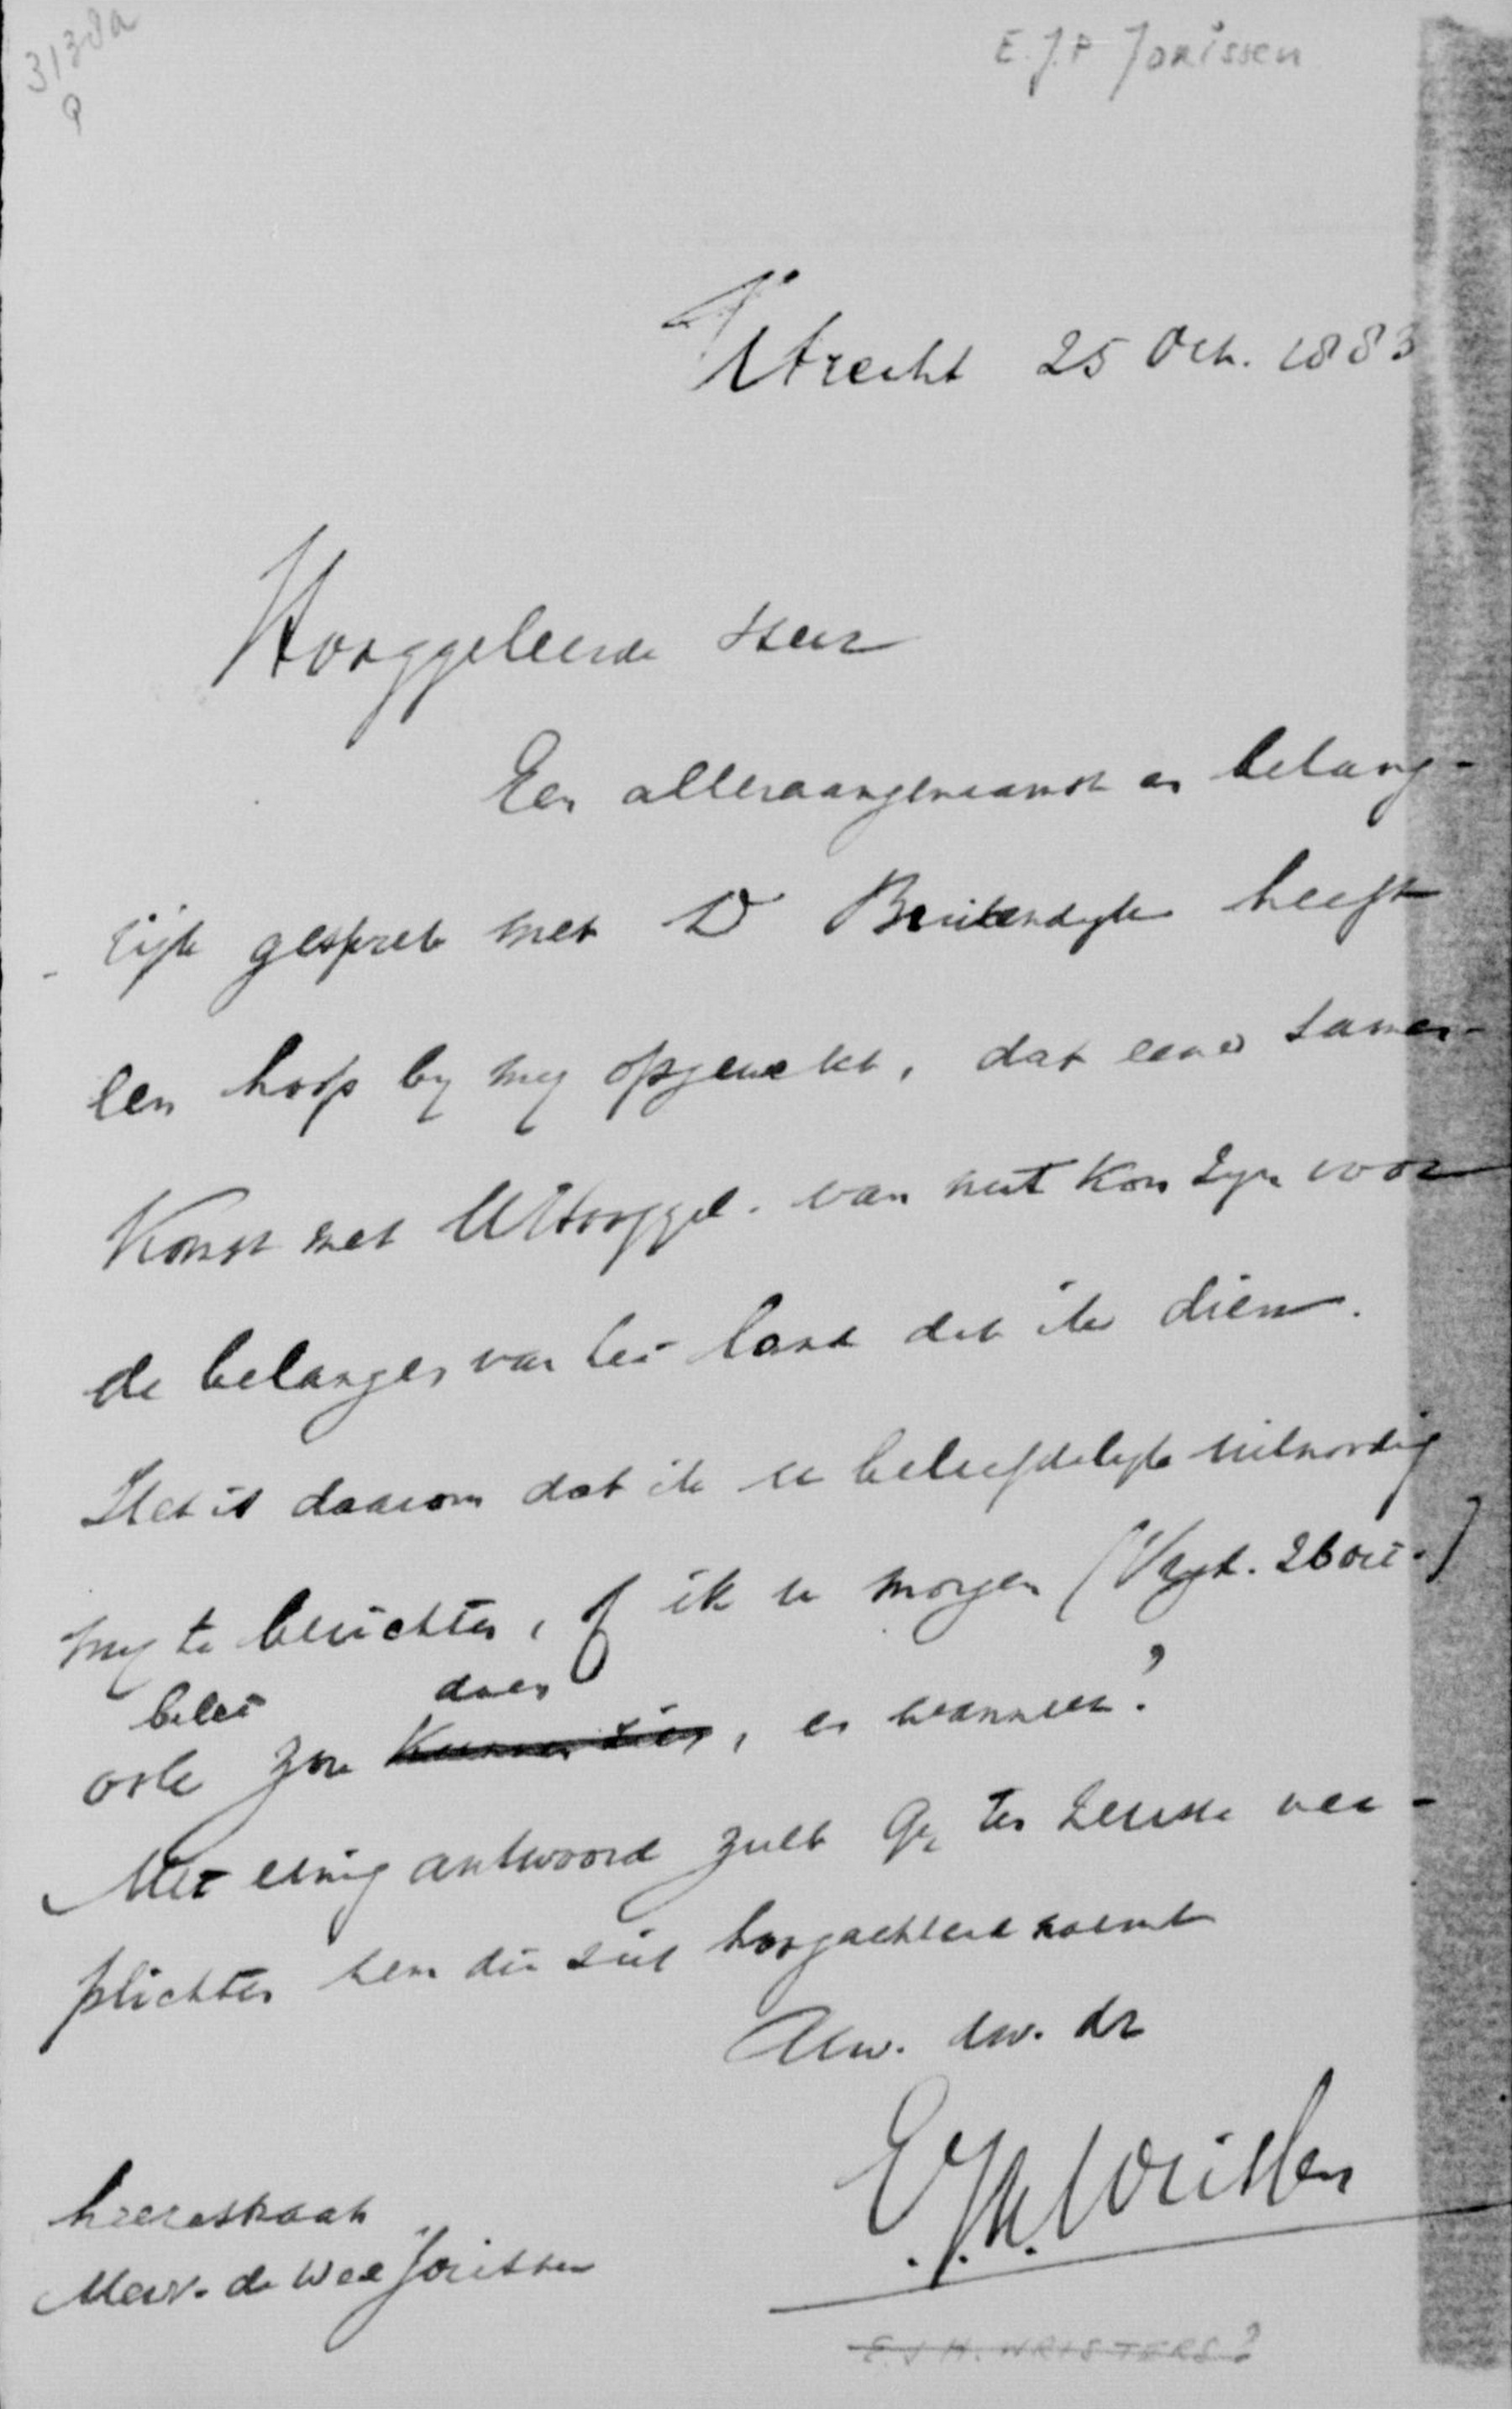 3138a
P
E.J.P Jorissen
Utrecht 25 Oct. 1883
Hooggeleerde Heer
Een alleraangenaamst en belang-
rijk gesprek met Dr Bruitendyk heeft
een hoop by my opgewekt, dat eene samen-
komst met UHooggel. van nut kon zyn voor
de belangen van het land dat ik dien.
Het is daarom dat ik u beleefdelyk uitnoodig
my te berichten, of ik u morgen (Vryd. 26 Oct.)
belet doen
ook zou kunnen zien, en wanneer?
Met eenig antwoord zult Gy ten zeerste ver-
plichten hem die zich hoogachtend noemt
Uw. dw. dr
E.J.P. Jorissen
heerestraat
Mevr. de Wed Jorissen
E J H. WRISTERS?